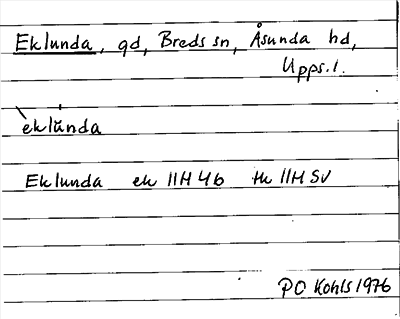 Eklunda, gd, Breds sn, Åsunda hd,
Upps. l.
èklúnda
Eklunda ek 11H 4b tk 11H SV
PO Kohls 1976